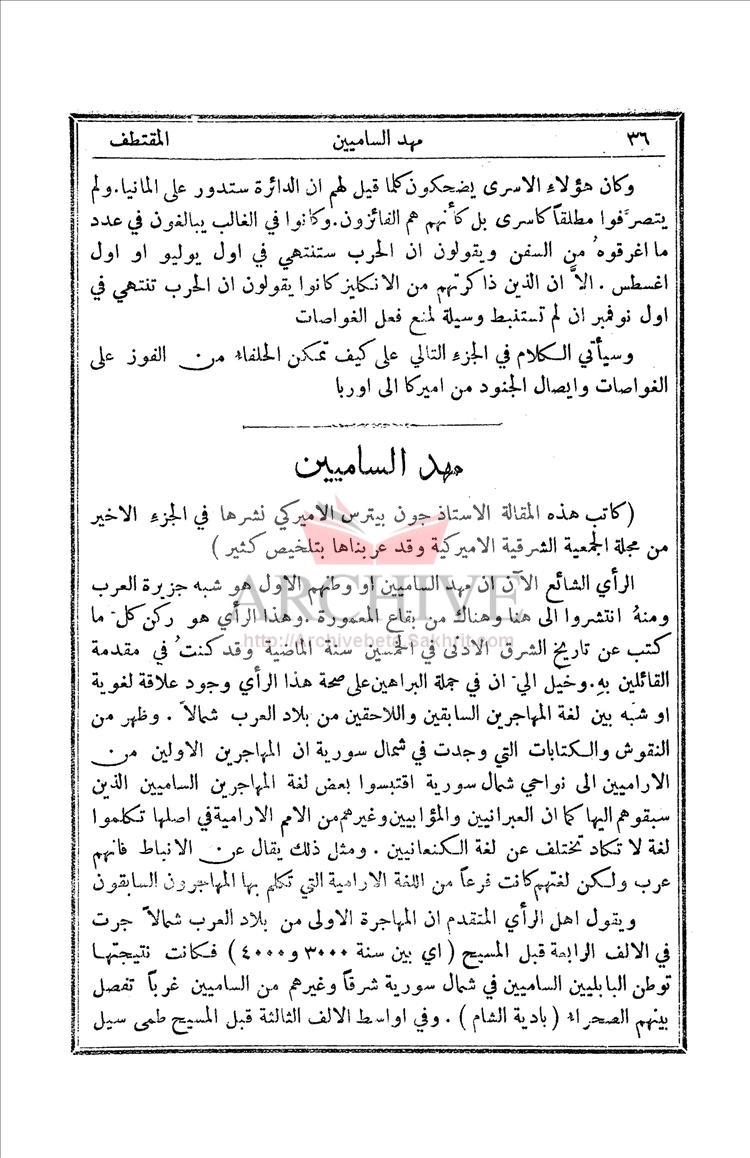 ٣٦ مهد الساميين المقتطف
وكان هؤلاء الاسرى يضحكون كلما قيل لهم ان الدائرة ستدور على المانيا. ولم
يتصرَّفوا مطلقاً كاسرى بل كأنهم هم الفائزون. وكانوا في الغالب يبالغون في عدد
ما اغرقوهُ من السفن ويقولون ان الحرب ستنتهي في اول يوليو او اول
اغسطس . الاَّ ان الذين ذاكرتهم من الانكليز كانوا يقولون ان الحرب تنتهي في
اول نوفمبر ان لم تستنبط وسيلة لمنع فعل الغواصات
وسيأتي الكلام في الجزء التالي على كيف تمكن الحلفاء من الفوز على
الغواصات وايصال الجنود من اميركا الى اوربا
مهد الساميين
(كاتب هذه المقالة الاستاذ جون بيترس الاميركي نشرها في الجزء الاخير
من مجلة الجمعية الشرقية الاميركية وقد عربناها بتلخيص كثير )
الرأي الشائع الآن ان مهد الساميين او وطنهم الاول هو شبه جزيرة العرب
ومنهُ انتشروا الى هنا وهناك من بقاع المعمورة . وهذا الرأي هو ركن كل ما
كتب عن تاريخ الشرق الادنى في الخمسين سنة الماضية وقد كنتُ في مقدمة
القائلين بهِ. وخيل اليَّ ان في جملة البراهين على صحة هذا الرأي وجود علاقة لغوية
او شبه بين لغة المهاجرين السابقين واللاحقين من بلاد العرب شمالاً . وظهر من
النقوش والكتابات التي وجدت في شمال سورية ان المهاجرين الاولين من
الاراميين الى نواحي شمال سورية اقتبسوا بعض لغة المهاجرين الساميين الذين
سبقوهم اليها كما ان العبرانيين والمؤابيين وغيرهم من الامم الارامية في اصلها تكلموا
لغة لا تكاد تختلف عن لغة الكنعانيين . ومثل ذلك يقال عن الانباط فانهم
عرب ولكن لغتهم كانت فرعاً من اللغة الارامية التي تكلم بها المهاجرون السابقون
ويقول اهل الرأي المتقدم ان المهاجرة الاولى من بلاد العرب شمالاً جرت
في الالف الرابعة قبل المسيح ( اي بين سنة ٣٠٠٠ و ٤٠٠٠ ) فكانت نتيجتها
توطن البابليين الساميين في شمال سورية شرقاً وغيرهم من الساميين غرباً تفصل
بينهم الصحراء ( بادية الشام ) . وفي اواسط الالف الثالثة قبل المسيح طمى سيل
ARCHIVE
http://Archivebeta.Sakhrit.com